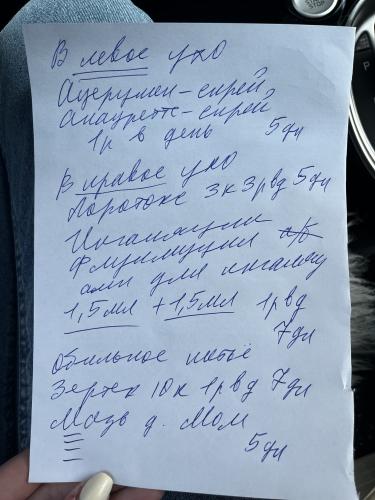 В левое ухо
Ацерумен-спрей
Анауретте-спрей
1р в день 5дн
В правое ухо
Лоротокс 3к 3р вд 5дн
Ингаляции
Флуимуцил а/б
амп для ингаляц
1,5мл + 1,5мл 1р вд
7дн
Обильное питьё
Зертек 10к 1р вд 7дн
Мазь д. Мом
5дн